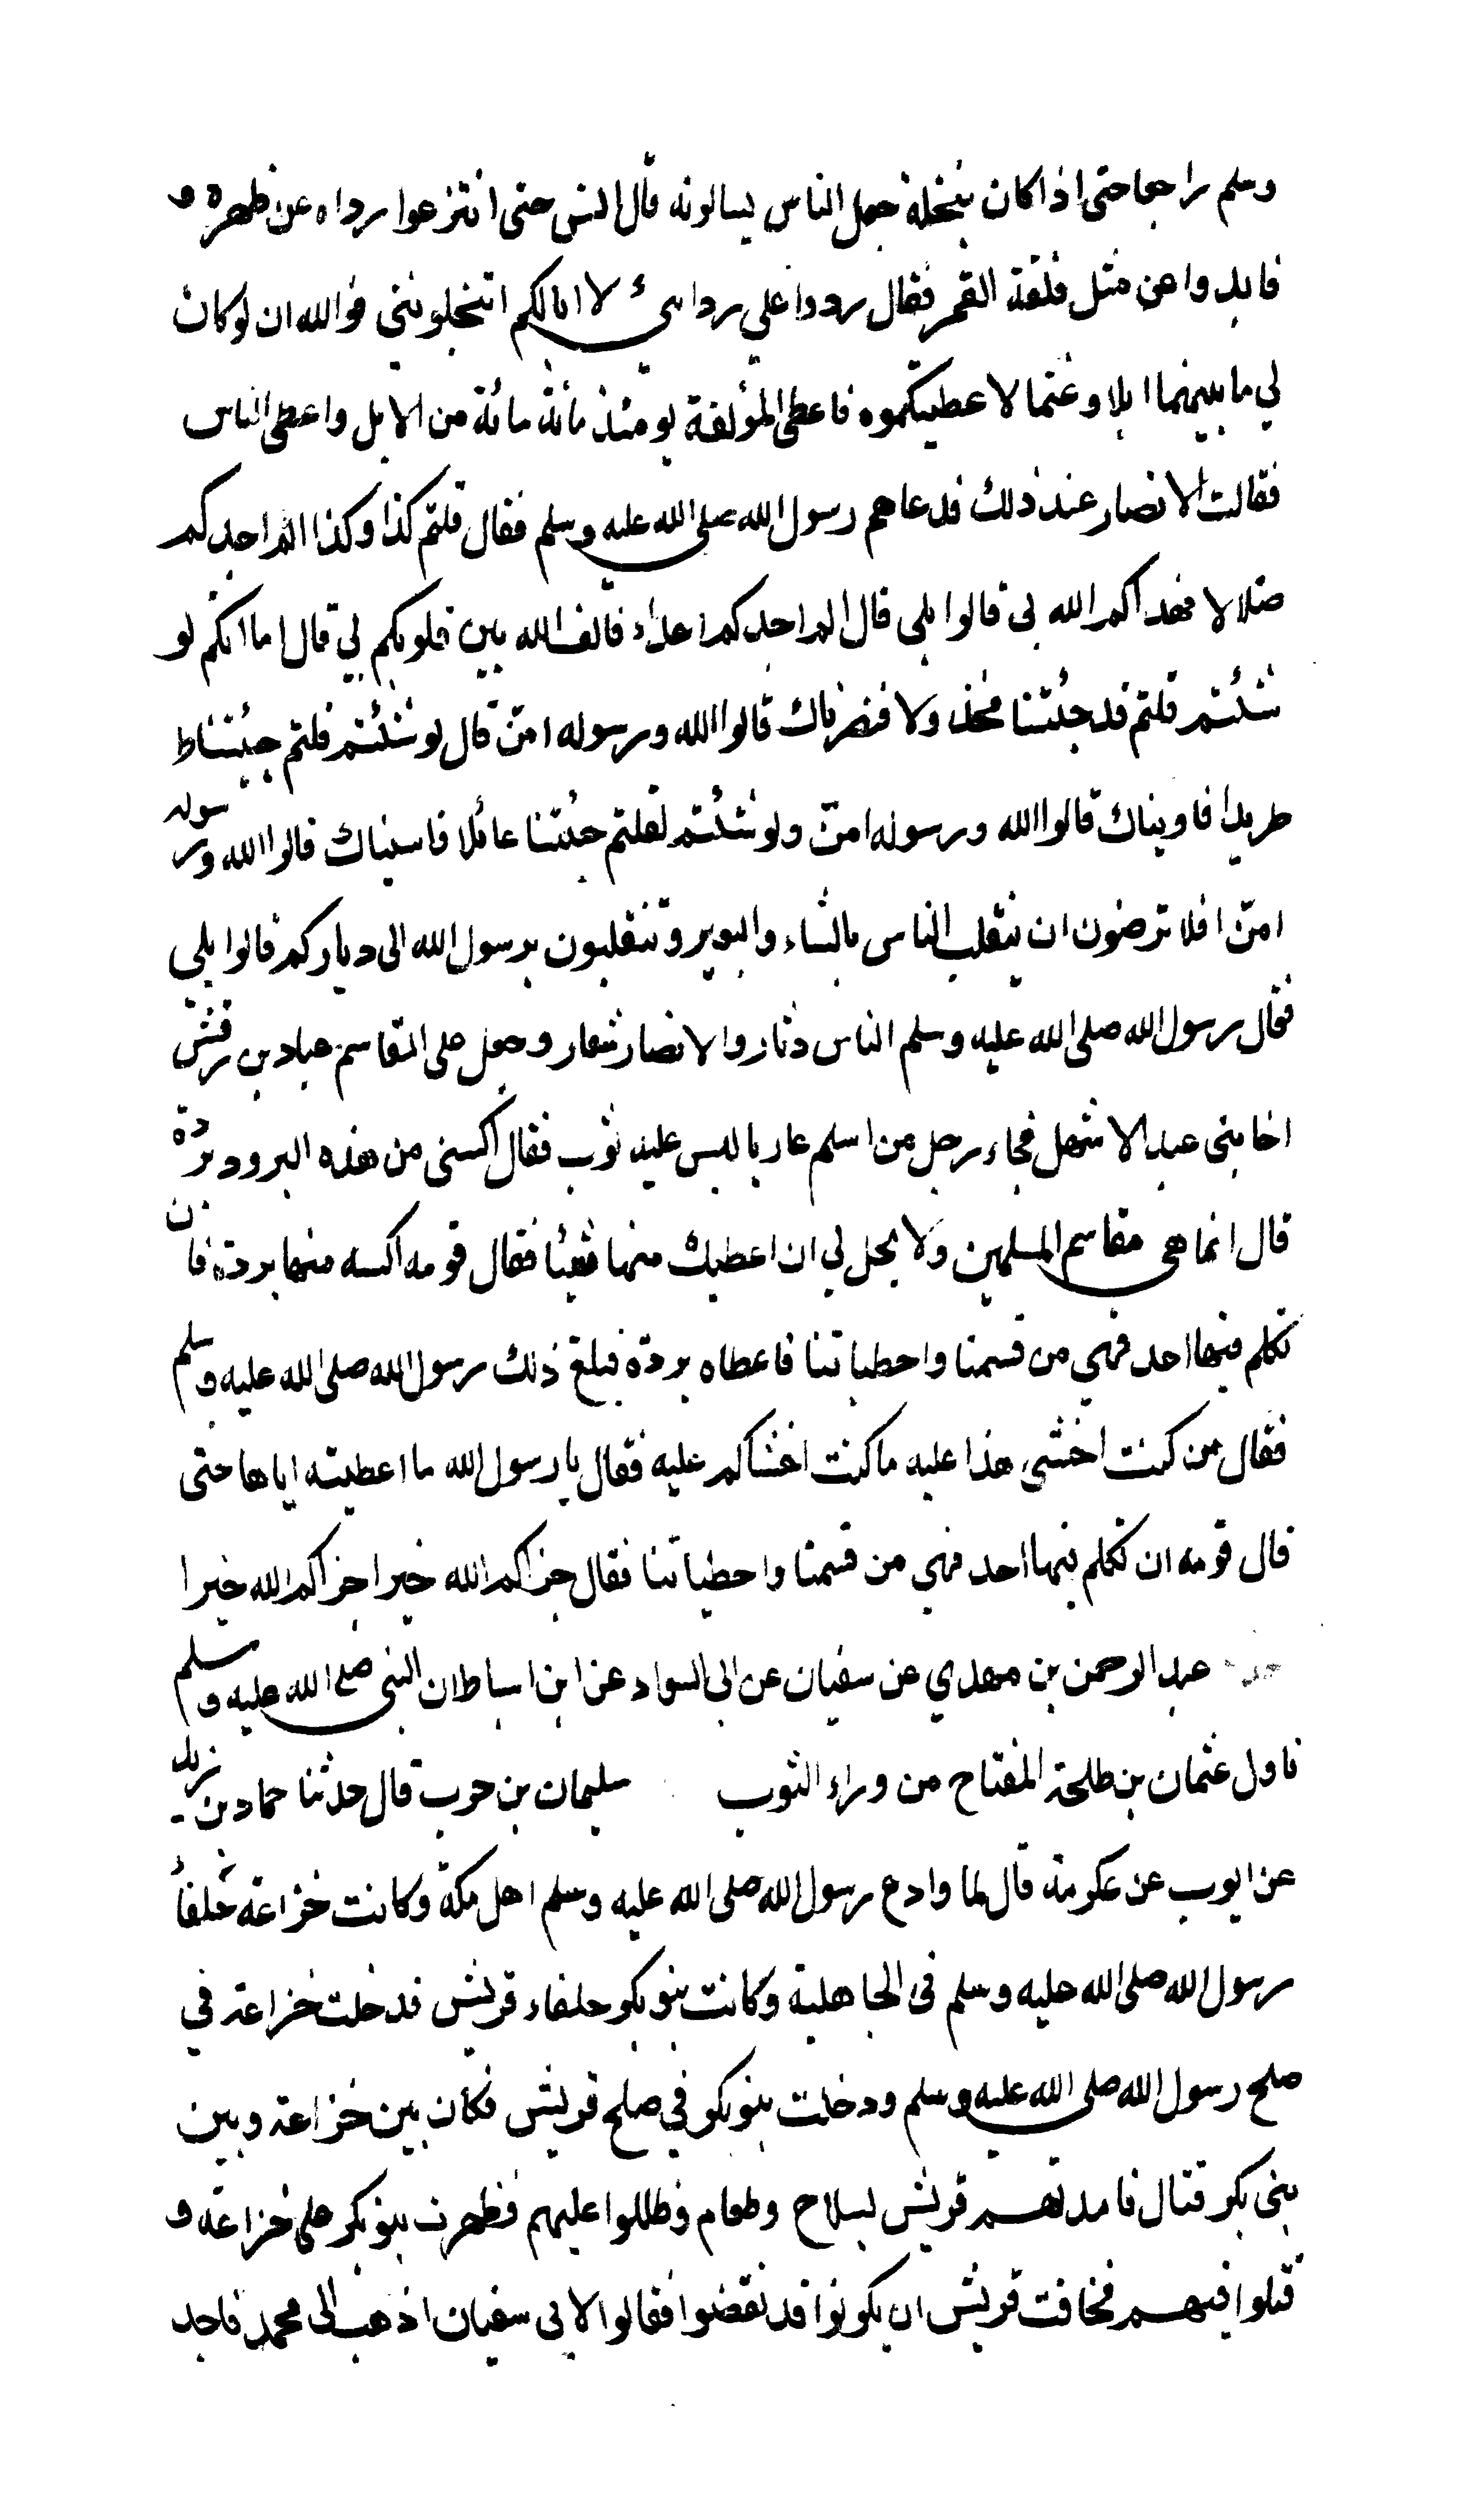 وسلم راجعا حتى اذا كان بنخلة جعل الناس يسالونه قال انس حتى انتزعوا رداه عن ظهره و
فابدوا عن مثل فلقة القمر فقال ردوا علي ردايء لا ابالكم اتبخلونني فوالله ان لو كان
لي ما بينهما ابلا وغنما لاعطيتكموه فاعطى المؤلفة يومئذ مائة مائة من الابل واعطى الناس
فقالت الانصار عند ذلك فدعاهم رسول الله صلى الله عليه وسلم فقال قلتم كذا وكذا الم اجدكم
ضلالا فهداكم الله بي قالوا بلى قال الم اجدكم اعداء فالف الله بين قلوبكم بي قال اما انكم لو
شئتم قلتم قد جئتنا مخذولا فنصرناك قالوا الله ورسوله امن قال لو شئتم قلتم جئتنا ط
طريدا فاويناك قالوا الله ورسوله امن ولو شئتم لقلتم جئتنا عائلا فاسيناك قالوا الله ورسوله
امن افلا ترضون ان ينقلب الناس بالشاء والبعير وتنقلبون برسول الله الى دياركم قالوا بلى
فقال رسول الله صلى الله عليه وسلم الناس دثار والانصار شعار وجعل على المقاسم عباد بن وقش
اخا بني عبد الاشهل فجاء رجل من اسلم عاريا ليس عليه ثوب فقال اكسني من هذه البرود بردة
قال انما هي مقاسم المسلمين ولا يحل لي ان اعطيك منها شيئا فقال قومه اكسه منها بردة فان
تكلم فيها احد فهي من قسمنا واعطياتنا فاعطاه بردة فبلغ ذلك رسول الله صلى الله عليه وسلم
فقال من كنت اخشى هذا عليه ما كنت اخشاكم عليه فقال يا رسول الله ما اعطيته اياها حتى
قال قومه ان تكلم فيها احد فهي من قسمنا واعطياتنا فقال جزاكم الله خيرا جزاكم الله خيرا
عبد الرحمن بن مهدي عن سفيان عن ابي السواد عن ابن اساط ان النبي صلى الله عليه وسلم
ناول عثمان بن طلحة المفتاح من وراء الثوب سليمان بن حرب قال حدثنا حماد بن زيد
عن ايوب عن عكرمة قال لما وادع رسول الله صلى الله عليه وسلم اهل مكة وكانت خزاعة حلفاء
رسول الله صلى الله عليه وسلم في الجاهلية وكانت بنو بكر حلفاء قريش فدخلت خزاعة في
صلح رسول الله صلى الله عليه وسلم ودخلت بنو بكر في صلح قريش فكان بين خزاعة وبين
بني بكر قتال فامدتهم قريش بسلاح وطعام وظللوا عليهم فظهرت بنو بكر على خزاعة و
قتلوا فيهم فخافت قريش ان يكونوا قد نقضوا فقالوا لابي سفيان اذهب الى محمد فاجد